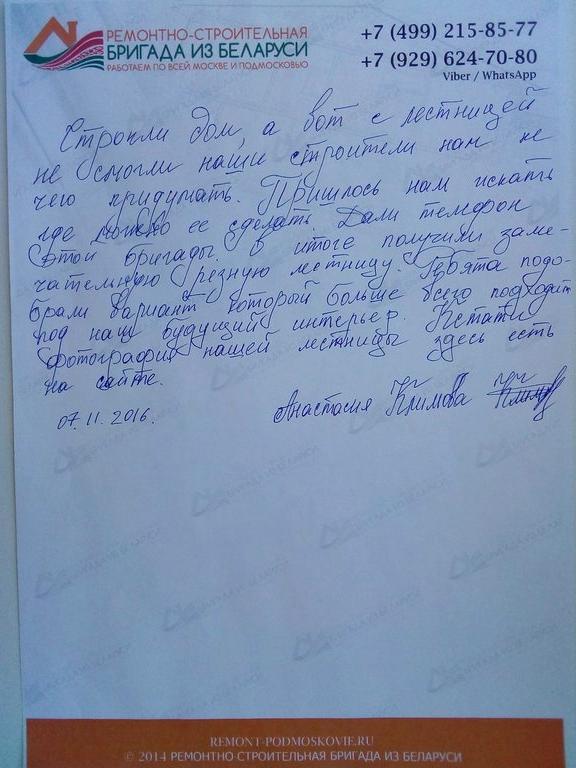 РЕМОНТНО-СТРОИТЕЛЬНАЯ
БРИГАДА ИЗ БЕЛАРУСИ
РАБОТАЕМ ПО ВСЕЙ МОСКВЕ И ПОДМОСКОВЬЮ
+7 (499) 215-85-77
+7 (929) 624-70-80
Viber / WhatsApp
Строили дом, а вот с лестницей
не смогли наши строители нам не
чего придумать. Пришлось нам искать
где можно ее сделать. Дали телефон
этой бригады. В итоге получили заме-
чательную резную лестницу. Ребята подо-
брали вариант который больше всего подходит
под наш будущий интерьер. Кстати
фотография нашей лестницы здесь есть
на сайте.
07.11.2016.
Анастасия Климова
REMONT-PODMOSKOVIE.RU
© 2014 РЕМОНТНО СТРОИТЕЛЬНАЯ БРИГАДА ИЗ БЕЛАРУСИ